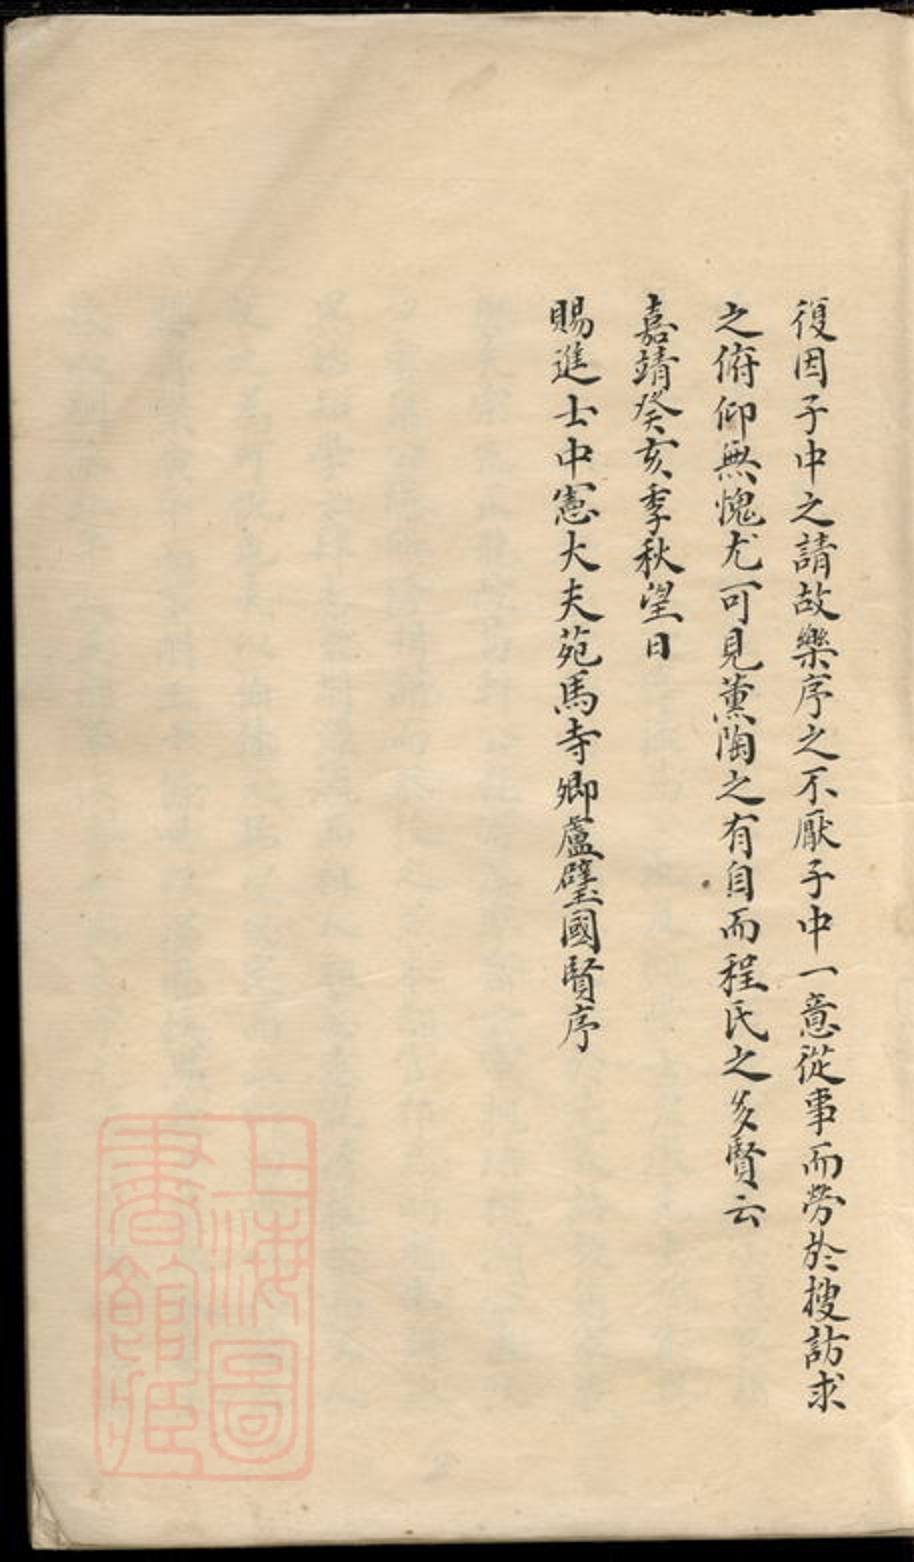 復因子中之請故樂序之不厭子中一意從事而勞於搜訪求
之俯仰無愧尤可見薰陶之有自而程氏之多賢云
嘉靖癸亥季秋望日
賜進士中憲大夫苑馬寺卿蘆璧國賢序
上海圖
書館藏